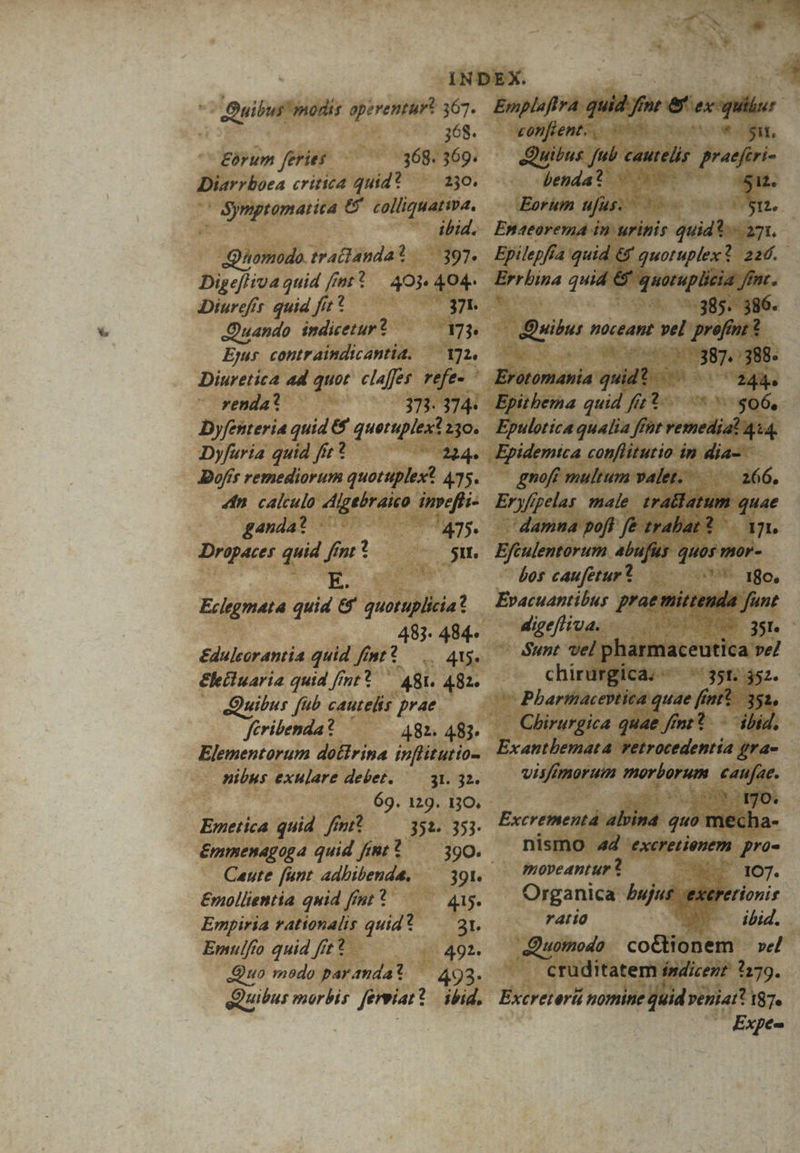 INDEX.
Quibus modis operentur? 367.
368.
Eorum series 368. 369.
Diarrhoea critica quid? 230.
Symptomatica & colliquativa.
ibid.
Quomodo tractanda? 397.
Digestiva quid sint? 403. 404.
Diuresis quid sit? 371.
Quando indicetur? 173.
Ejus contraindicantia. 172.
Diuretica ad quot classes refe-
renda? 373. 374.
Dysenteria quid & quotuplex? 230.
Dysuria quid sit? 224.
Dosis remediorum quotuplex? 475.
An calculo Algebraico investi-
ganda? 475.
Dropaces quid sint? 511.
E.
Eclegmata quid & quotuplicia?
483. 484.
Edulcorantia quid sint? 415.
Electuaria quid sint? 481. 482.
Quibus sub cautelis prae
scribenda? 482. 483.
Elementorum doctrina institutio-
nibus exulare debet. 31. 32.
69. 129. 130.
Emetica quid sint? 352. 353.
Emmenagoga quid sint? 390.
Caute sunt adhibenda. 391.
Emollientia quid sint? 415.
Empiria rationalis quid? 31.
Emulsio quid sit? 492.
Quo modo paranda? 493.
Quibus morbis serviat? ibid.
Emplastra quid sint & ex quibus
constent. 511.
Quibus sub cautelis praescri-
benda? 512.
Eorum usus. 512.
Enaeorema in urinis quid? 271.
Epilepsia quid & quotuplex? 226.
Errhina quid & quotuplicia sint.
385. 386.
Quibus noceant vel prosint?
387. 388.
Erotomania quid? 244.
Epithema quid sit? 506.
Epulotica qualia sint remedia? 414
Epidemica constitutio in dia-
gnosi multum valet. 266.
Erysipelas male tractatum quae
damna post se trahat? 171.
Esculentorum abusus quos mor-
bos causetur? 180.
Evacuantibus praemittenda sunt
digestiva. 351.
Sunt vel pharmaceutica vel
chirurgica. 351. 352.
Pharmacevtica quae sint? 352.
Chirurgica quae sint? ibid.
Exanthemata retrocedentia gra-
vissimorum morborum causae.
170.
Excrementa alvina quo mecha-
nismo ad excretionem pro-
moveantur? 107.
Organica hujus excretionis
ratio ibid.
Quomodo coctionem vel
cruditatem indicent? 279.
Excretorũ nomine quid veniat? 187.
Expe-